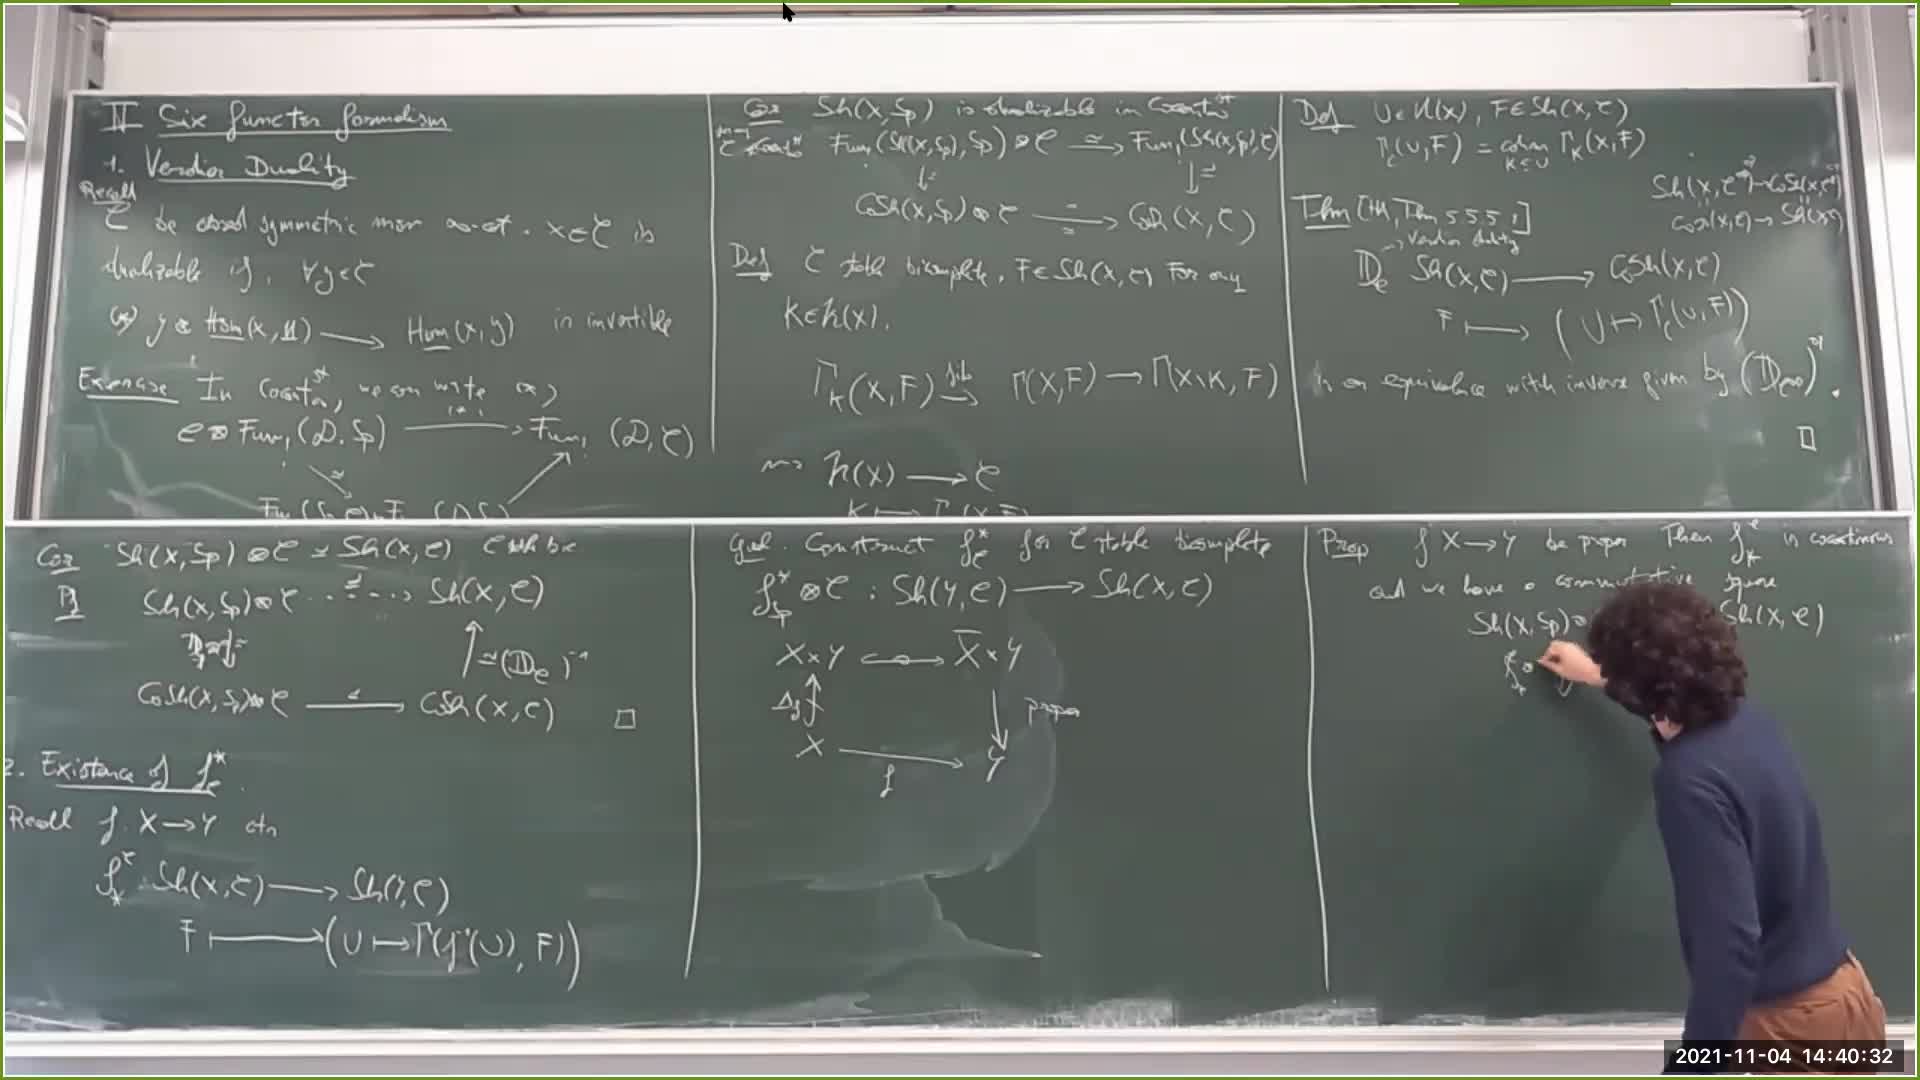 II Six functor formalism
1. Verdier Duality
Recall
C be closed symmetric mon ∞-cat. x∈C is
dualizable if, ∀y∈C
(*) y⊗Hom(x,1) ⟶ Hom(x,y) is invertible
Exercise In Cocont^st, we can write (*)
C⊗Fun_!(D,Sp) ⟶ Fun_!(D,C)
Cor Sh(X,Sp) is dualizable in Cocont^st
Fun_!(Sh(X,Sp),Sp)⊗C ≃⟶ Fun_!(Sh(X,Sp),C)
CoSh(X,Sp)⊗C ⟶ CoSh(X,C)
Def C stable bicomplete, F∈Sh(X,C) For any
K∈K(X),
Γ_K(X,F) fib⟶ Γ(X,F) ⟶ Γ(X\K,F)
⇝ K(X) ⟶ C
Def U∈U(X), F∈Sh(X,C)
Γ_c(U,F) = colim_{K⊆U} Γ_K(X,F)
Sh(X,C^op)⟶CoSh(X,C^op)
CoSh(X,C)⟶Sh(X,C)
Thm [HA, Thm 5.5.5.1]
⇝ Verdier duality
𝔻_C Sh(X,C) ⟶ CoSh(X,C)
F ⟼ (U ↦ Γ_c(U,F))
is an equivalence with inverse given by (𝔻_{C^op})^op.
□
Cor Sh(X,Sp)⊗C ≃ Sh(X,C) C st bic
Pf Sh(X,Sp)⊗C ⋯≃⋯> Sh(X,C)
≃(𝔻_C)^-1
CoSh(X,Sp)⊗C ≃⟶ CoSh(X,C) □
2. Existence of f_C^*.
Recall f: X⟶Y ctn
f_*^C: Sh(X,C) ⟶ Sh(Y,C)
F ⟼ (U ↦ Γ(f^-1(U), F))
Goal. Construct f_C^* for C stable bicomplete
f_Sp^*⊗C : Sh(Y,C) ⟶ Sh(X,C)
X×Y ↪ X̄×Y
Δ_f proper
X ⟶ Y
f
Prop f X⟶Y be proper Then f_*^C is cocontinuous
and we have a commutative square
Sh(X,Sp)⊗ Sh(X,C)
2021-11-04 14:40:32